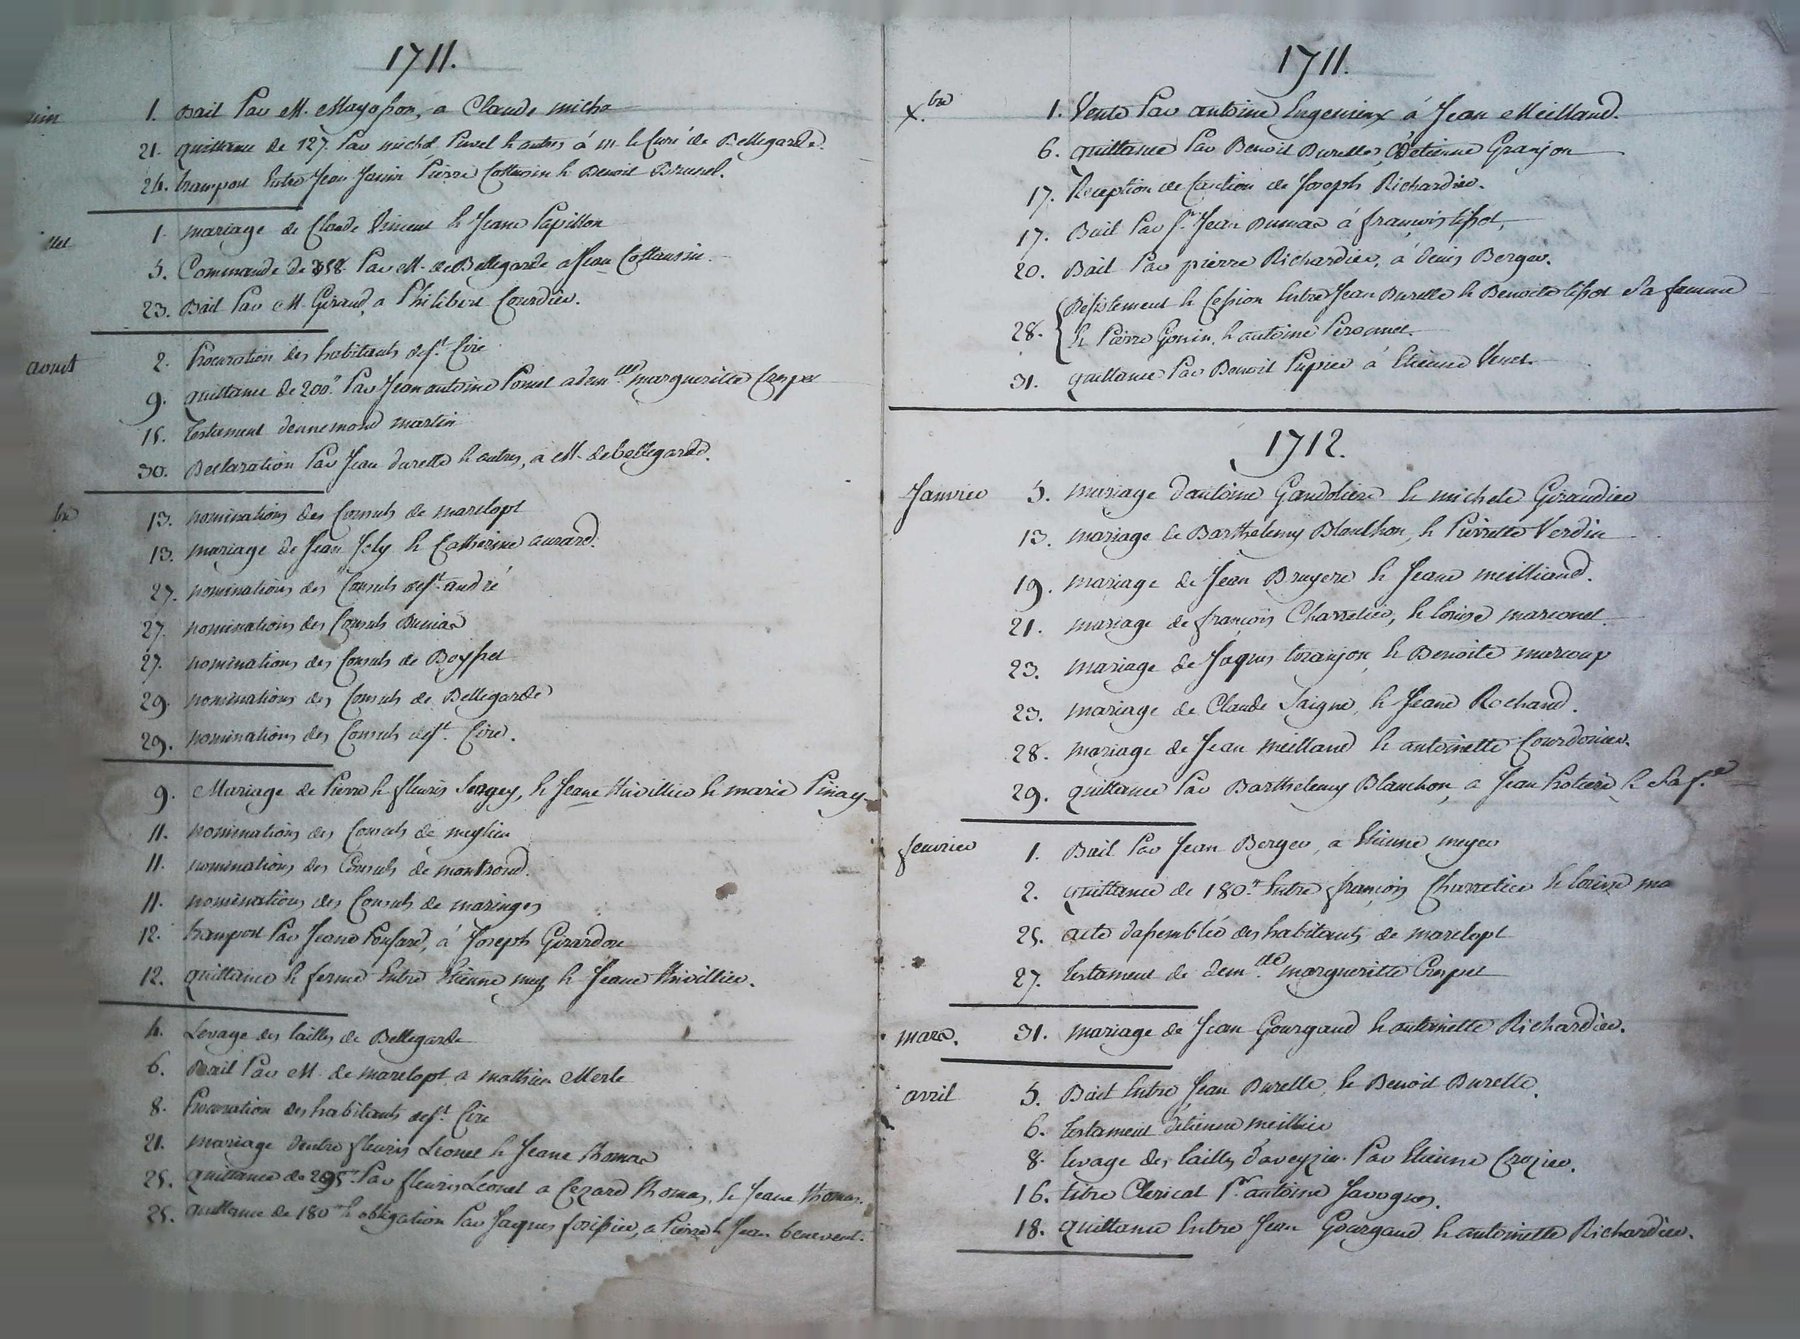 1711.
1. Bail Par M. Mayosson, a Claude micha
21. quittance de 127 Par michel Punel & autres á m. le Curé de Bellegarde.
24. transport Entre Jean Janin Pierre Cottansin & Benoit Brunel.
1. mariage de Claude Vincent & Jeane Papillon
5. Commande de 358 Par M. de Bellegarde a Jean Cottansin.
aoust
23. Bail Par M. Giraud, a Philibert Courdier.
2. Procuration des habitants de St. Cire
9. quittance de 200" Par Jean antoine Poncet a dem.lle margueritte Crespet
15. testament dennemond martin
30. Declaration Par Jean durelle & autres, a M. de bellegarde.
bre
13. nominations des Consuls de marclopt
13. mariage de Jean Joly & Catherine aurard.
27. nominations des Consuls de St. andré
27. nominations des Consuls
27. nominations des Consuls de Boysset
29. nominations des Consuls de Bellegarde
29. nominations des Consuls de St. Cire.
9. Mariage de Pierre & fleuris & Jeane thivillier & marie Pinay
11. nominations des Consuls de meylieu
11. nominations des Consuls de montrond.
11. nominations des Consuls de maringes
12. transport Par Jeane Ponsard, á Joseph Girardon
12. quittance & ferme Entre Etienne & Jeane thivillier.
4. Levage des tailles de Bellegarde
6. Bail Par M. de marclopt a mathieu Merle
8. Procuration des habitants de St. Cire
21. mariage dentre fleuris Leonet & Jeane thomas
25. quittance de 295" Par fleuris Leonet a Cezard thomas, & Jeane thomas.
25. quittance de 180" & obligation Par Jaques foissier, a Pierre & Jean benevent.
1711.
xbre
1. Vente Par antoine Ingenieux á Jean Meilland.
6. quittance Par Benoit Durelle, á Etienne Granjon
17. Reception de Caution de Joseph Richardier.
17. Bail Par Sr. Jean Dumas á françois tissot,
20. Bail Par pierre Richardier, á denis Berger.
28. Désistement & Cession Entre Jean Durelle & Benoite tissot Sa femme
& Pierre Gonin, & antoine Personnet.
31. quittance Par Benoit Pupier á Etienne Venet.
1712.
Janvier 5. mariage d'antoine Gandoliere & michele Giraudier
13. mariage de Barthelemy Blanchon, & Pierrette Verdier
19. mariage de Jean Bruyere & Jeane meilliand.
21. mariage de françois Charretier, & louise marconet
23. mariage de Jaques Granjon & Benoite marcoup
23. mariage de Claude Saigne, & Jeane Rochand.
28. mariage de Jean meilland & antoinette Courdonier.
29. quittance Par Barthelemy Blanchon, a Jean & Sa f.e
fevrier 1. Bail Par Jean Berger, a Etienne meyer
2. quittance de 180" Entre françois Charretier & louise ma
25. acte d'assemblée des habitants de marclopt
27. testament de dem.lle margueritte Crespet
mars. 31. mariage de Jean Gourgaud & antoinette Richardier.
avril 5. Bail Entre Jean Durelle, & Benoit Durelle.
6. testament d'etienne meillier
8. levage des tailles d'aveyzieu Par Etienne Crozier.
16. titre Clerical Sr. antoine Javogues.
18. quittance Entre Jean Gourgaud & antoinette Richardier.